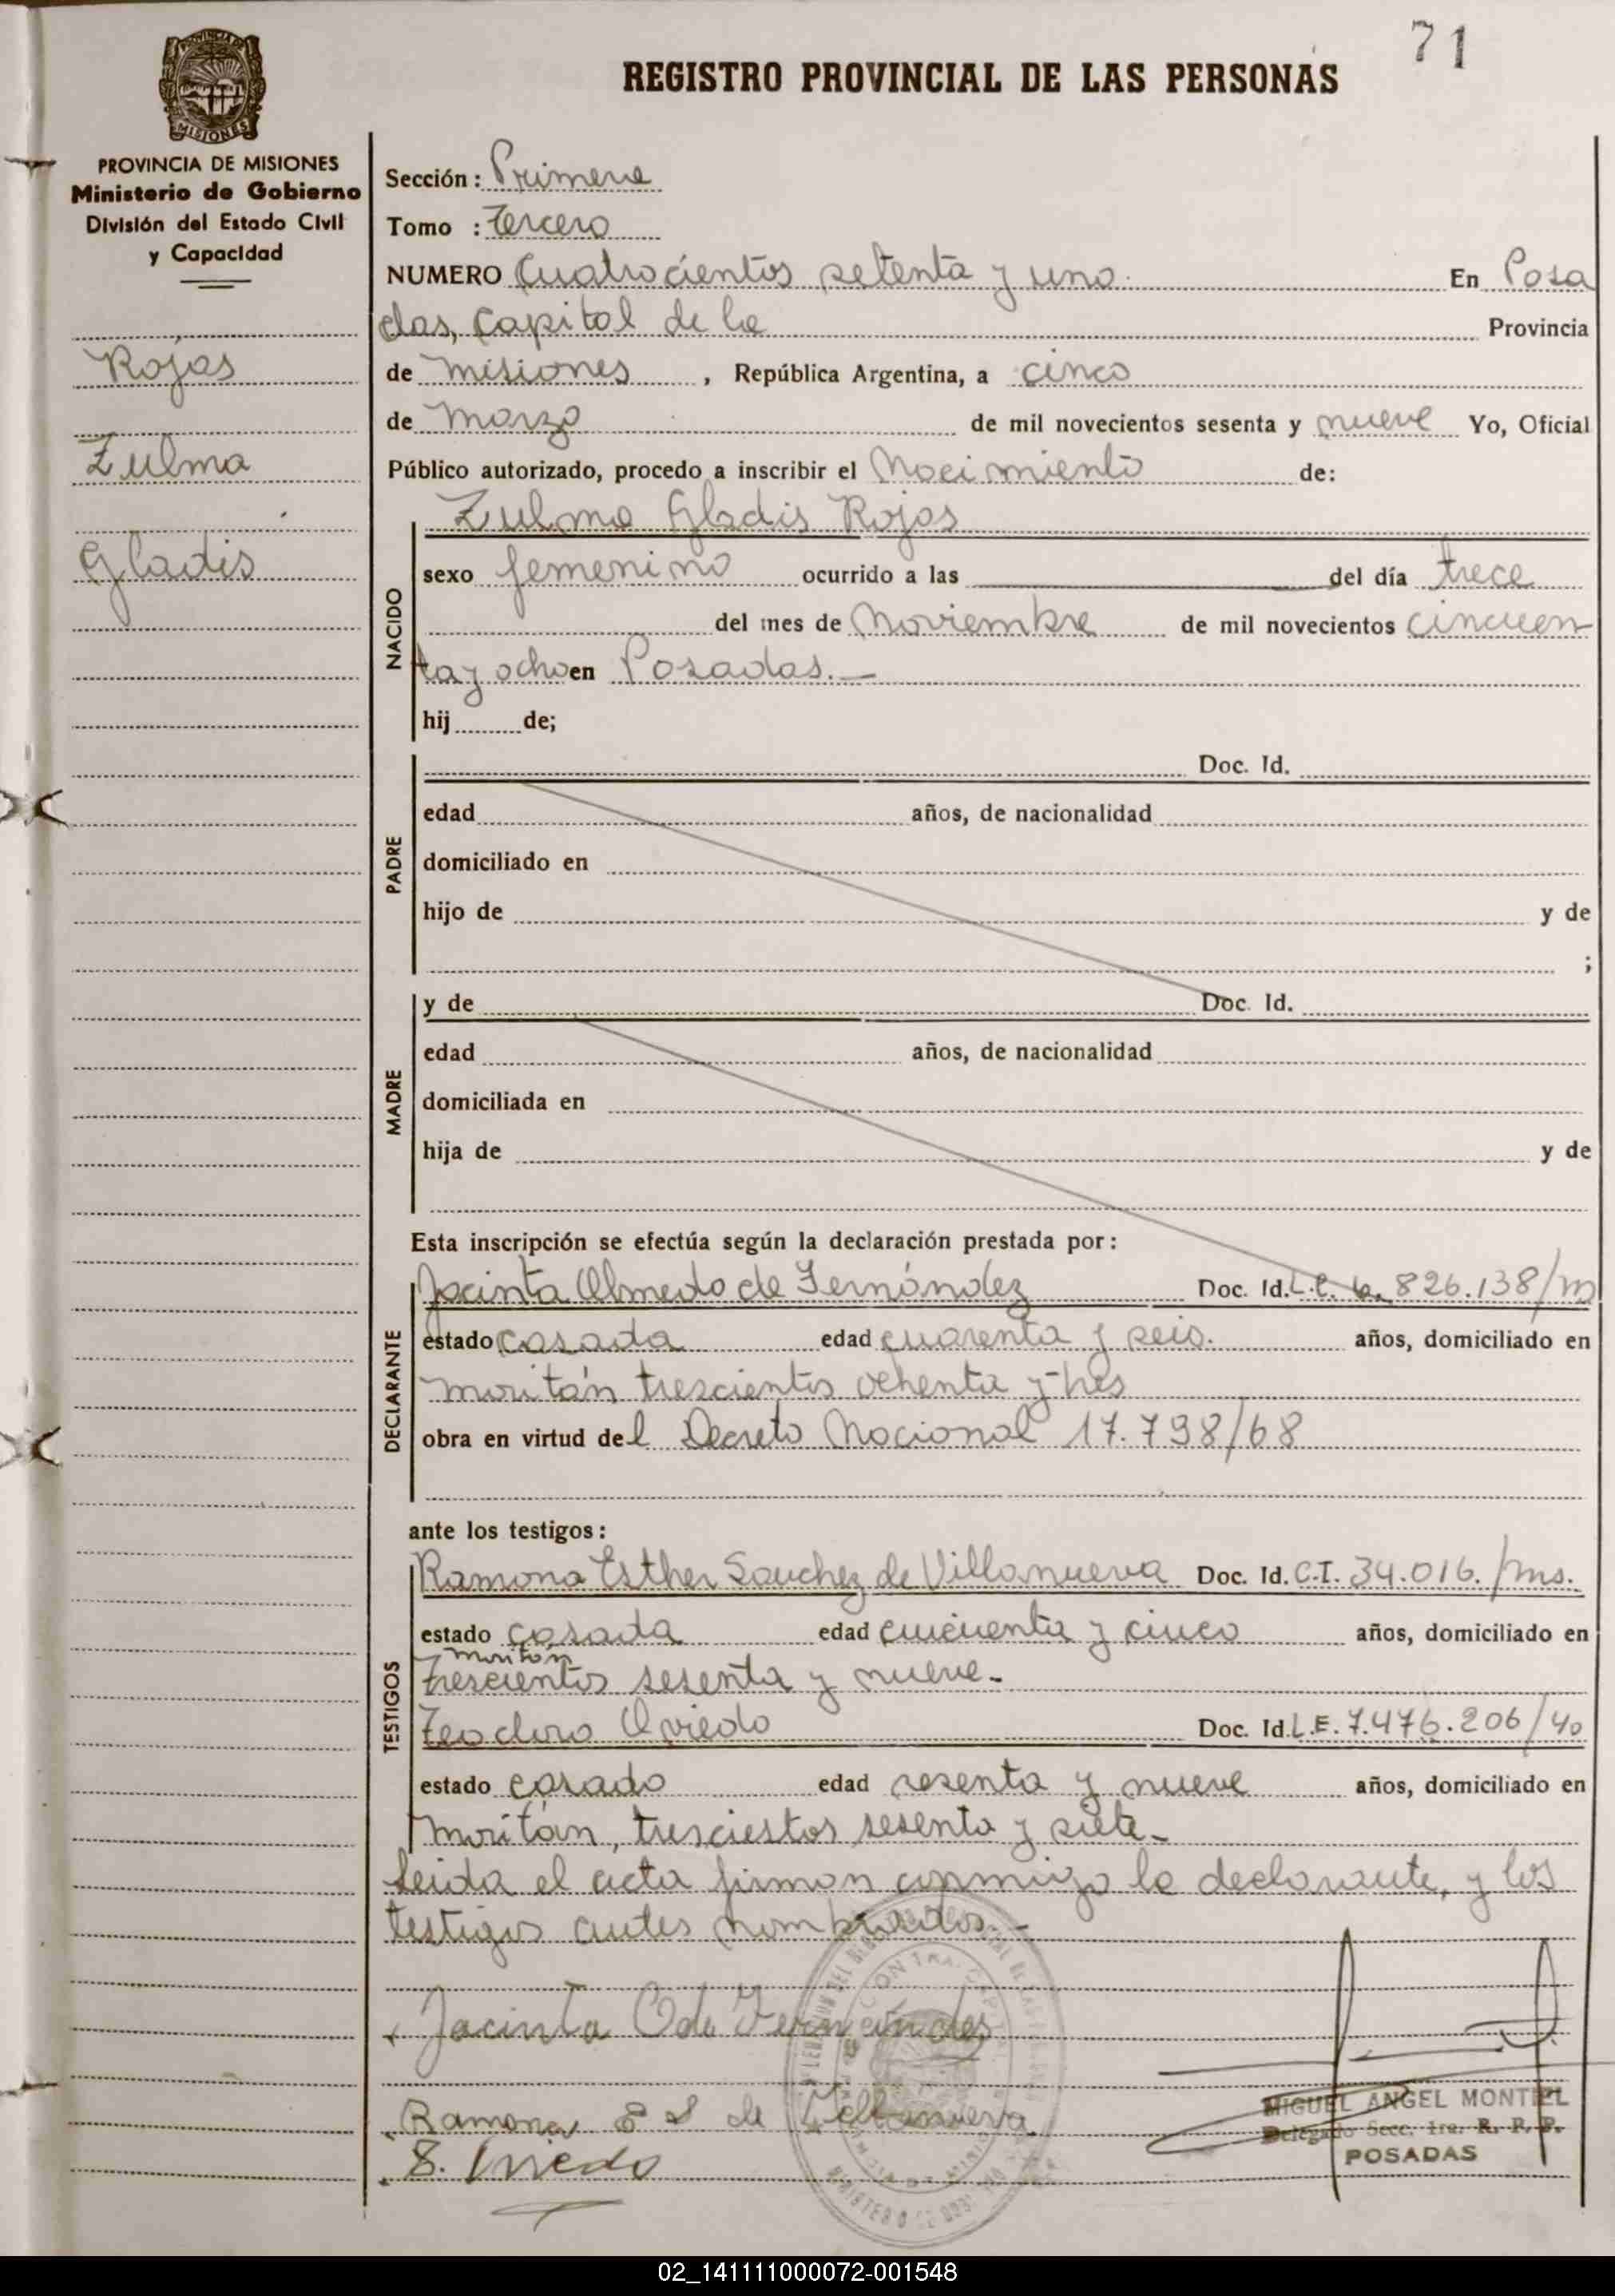 71
REGISTRO PROVINCIAL DE LAS PERSONAS
MISIONES
PROVINCIA DE MISIONES
Ministerio de Gobierno
División del Estado Civil
y Capacidad
Rojas
Zulma
Gladis
Sección: Primera
Tomo : Tercero
NUMERO Cuatrocientos setenta y uno. En Posa
das, Capital de la Provincia
de Misiones, República Argentina, a cinco
de Marzo de mil novecientos sesenta y nueve Yo, Oficial
Público autorizado, procedo a inscribir el Nacimiento de:
NACIDO
Zulma Gladis Rojas
sexo femenino ocurrido a las del día trece
del mes de Noviembre de mil novecientos cincuen
ta y ocho en Posadas.—
hij de;
PADRE
Doc. Id.
edad años, de nacionalidad
domiciliado en
hijo de y de
;
MADRE
y de Doc. Id.
edad años, de nacionalidad
domiciliada en
hija de y de
Esta inscripción se efectúa según la declaración prestada por:
DECLARANTE
Jacinta Olmedo de Fernández Doc. Id. L.C. 6.826.138/m
estado casada edad cuarenta y seis. años, domiciliado en
Moritán trescientos ochenta y tres
obra en virtud del Decreto Nacional 17.798/68
ante los testigos:
TESTIGOS
Ramona Esther Sanchez de Villanueva Doc. Id. C.I. 34.016./ms.
estado casada edad cincuenta y cinco años, domiciliado en
Moritán
Trescientos sesenta y nueve-
Teodoro Oviedo Doc. Id. L.E. 7.476.206/40
estado casado edad sesenta y nueve años, domiciliado en
Moritán, tresciestos sesenta y siete-
Leida el acta firman conmigo la declarante, y los
testigos antes nombrados-
Jacinta O de Fernandes
Ramona E S de Villanueva
Oviedo
MIGUEL ANGEL MONTIEL
Delegado Secc. 1ra. R. P. P.
POSADAS
02_141111000072-001548